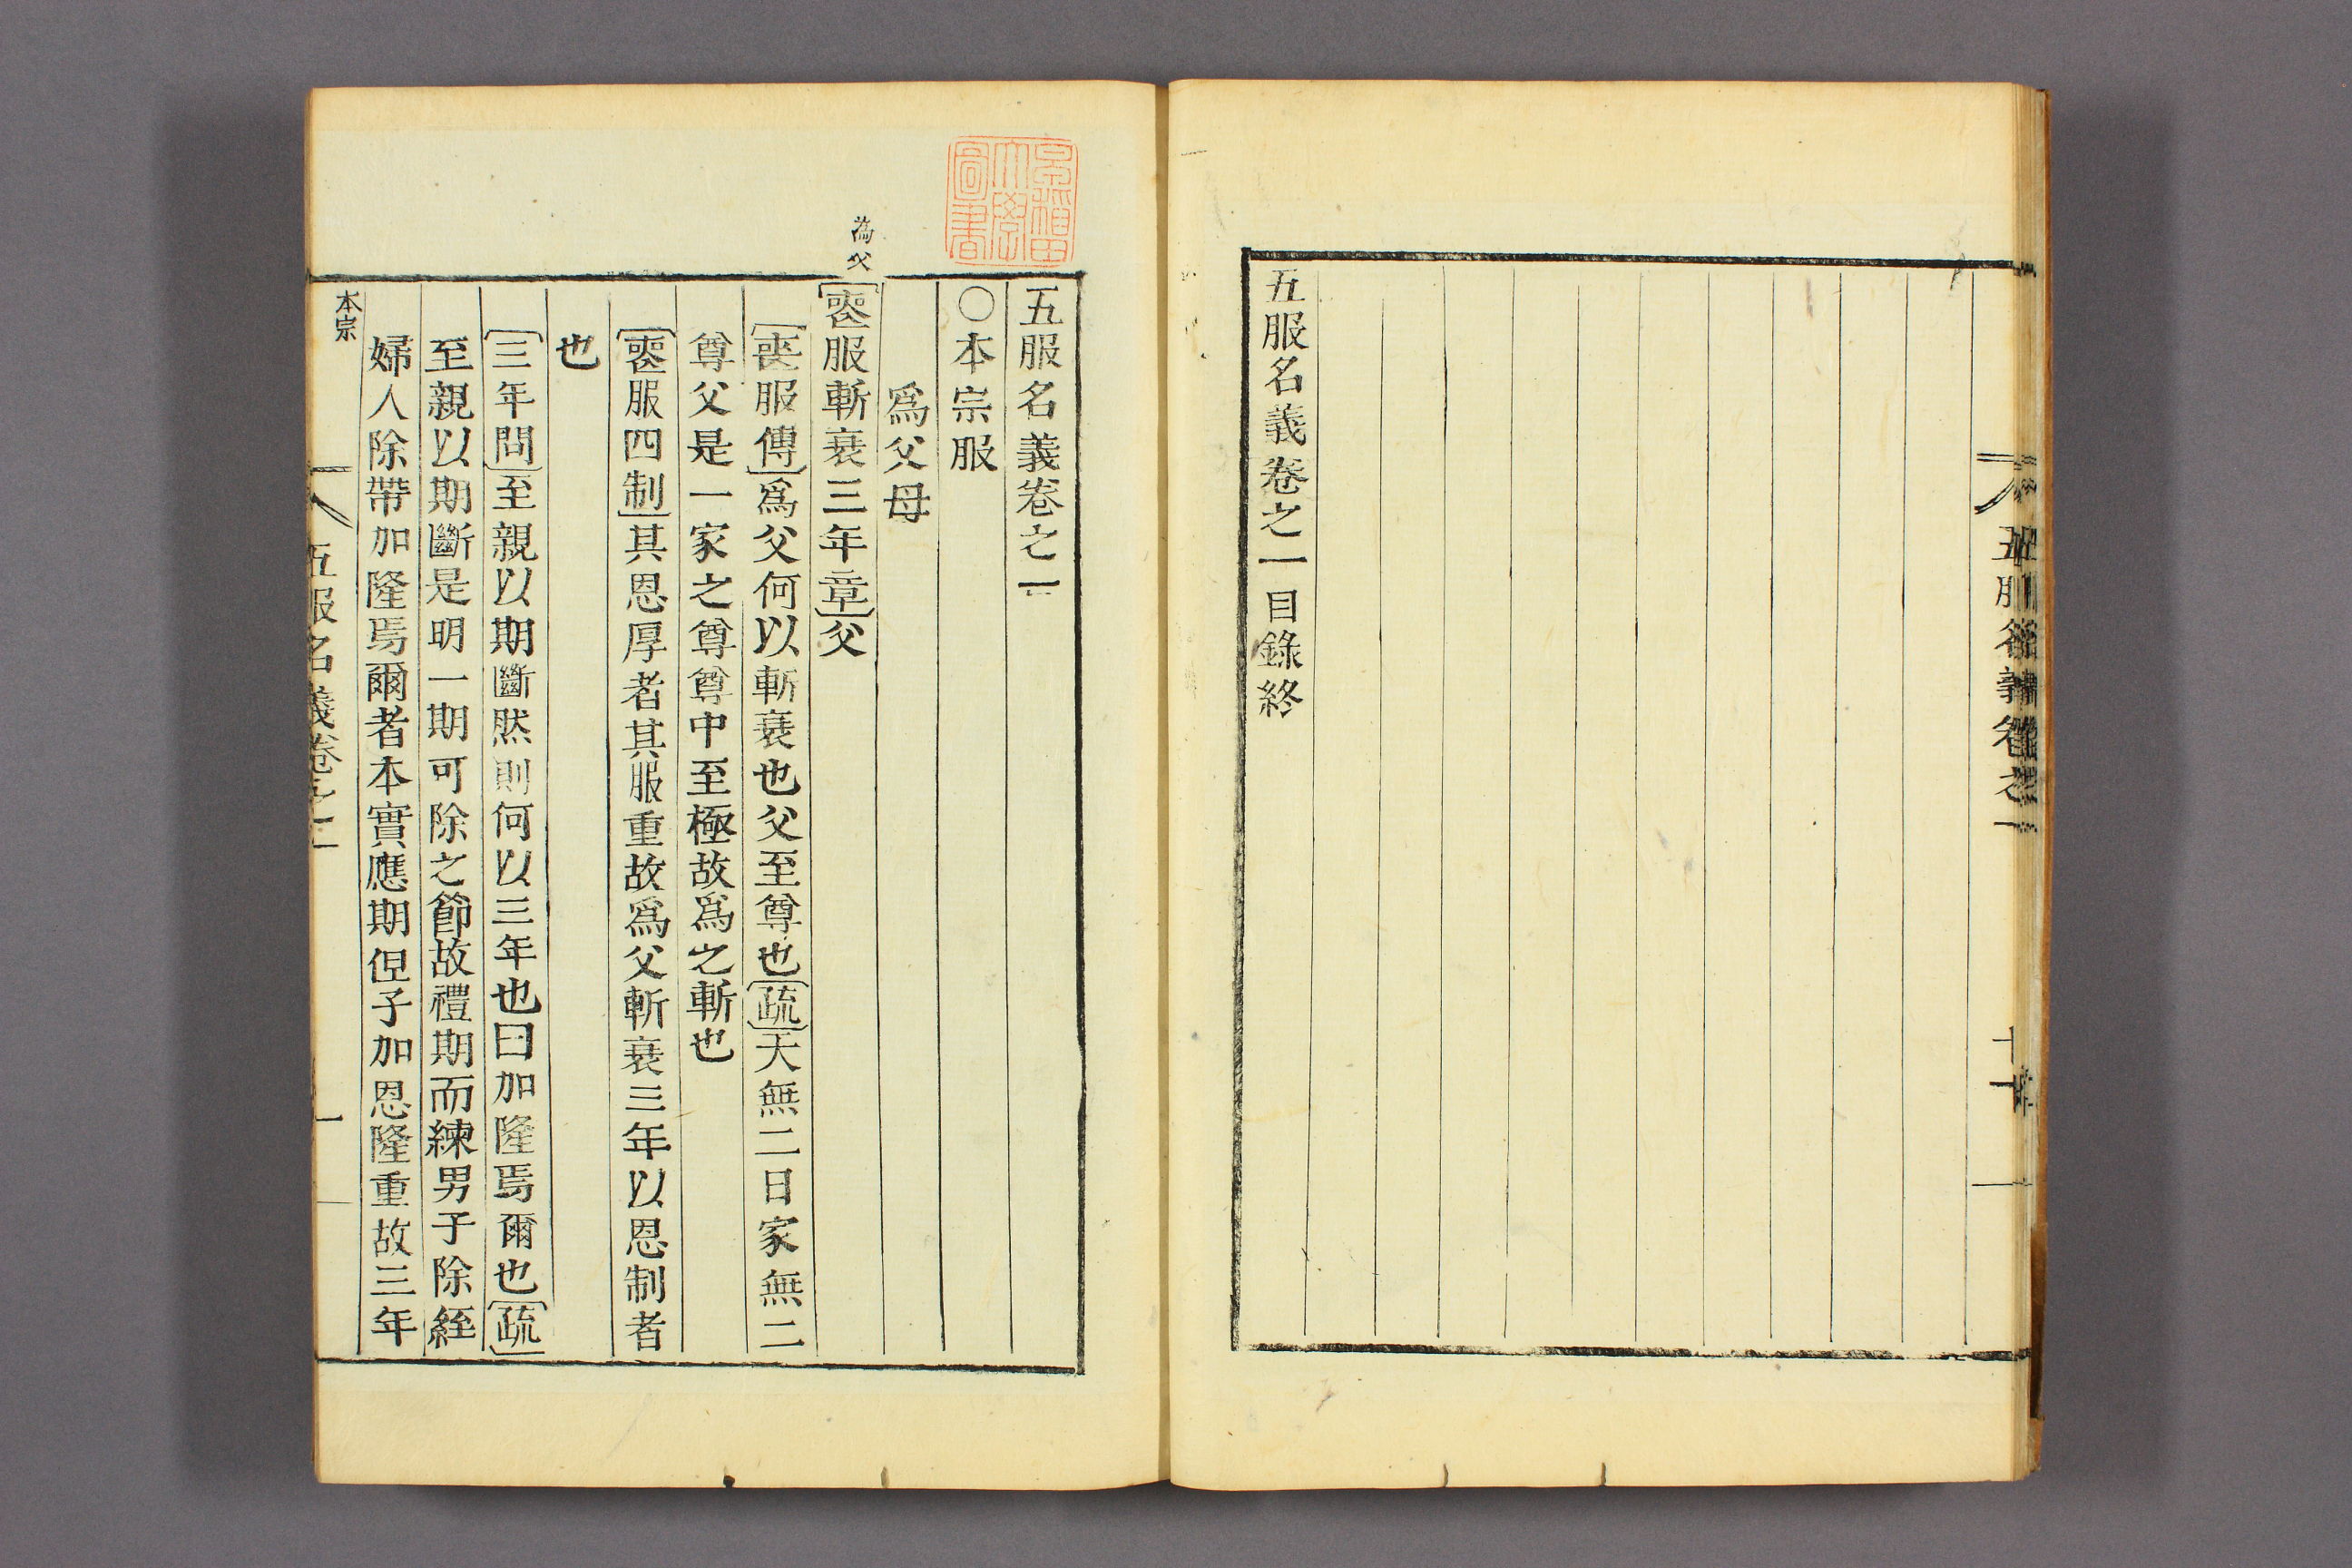 五服名義卷之一
十一
五服名義卷之一目錄終
早稻田
大學
圖書
五服名義卷之一
〇本宗服
爲父母
為父
〔喪服斬衰三年章〕父
〔喪服傳〕爲父何以斬衰也父至尊也〔疏〕天無二日家無二
尊父是一家之尊尊中至極故爲之斬也
〔喪服四制〕其恩厚者其服重故爲父斬衰三年以恩制者
也
〔三年問〕至親以期斷然則何以三年也曰加隆焉爾也〔疏〕
至親以期斷是明一期可除之節故禮期而練男子除絰
婦人除帶加隆焉爾者本實應期但子加恩隆重故三年
本宗
五服名義卷之一
一